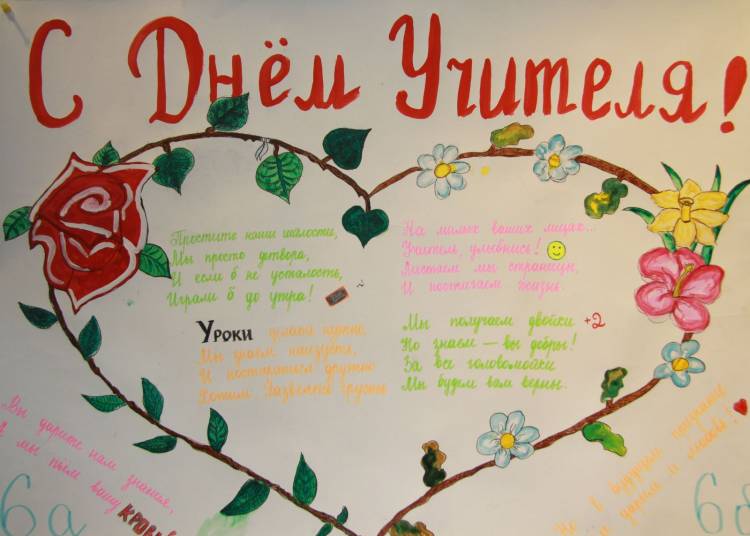 С Днём Учителя!
Простите наши шалости,
Мы просто детвора,
И если б не усталость,
Играли б до утра!
На милых ваших лицах...
Учитель, улыбнись!
Листаем мы страницы,
И постигаем жизнь.
Уроки
Мы знаем наизусть,
И постараемся дружно
Мы получаем двойки +2
Но знаем – вы добры!
За все головомойки
Мы будем вам верны.
Вы дарите нам знания,
А мы пьём вашу КРОВЬ!
Но в будущем
и любовь!
6а
6